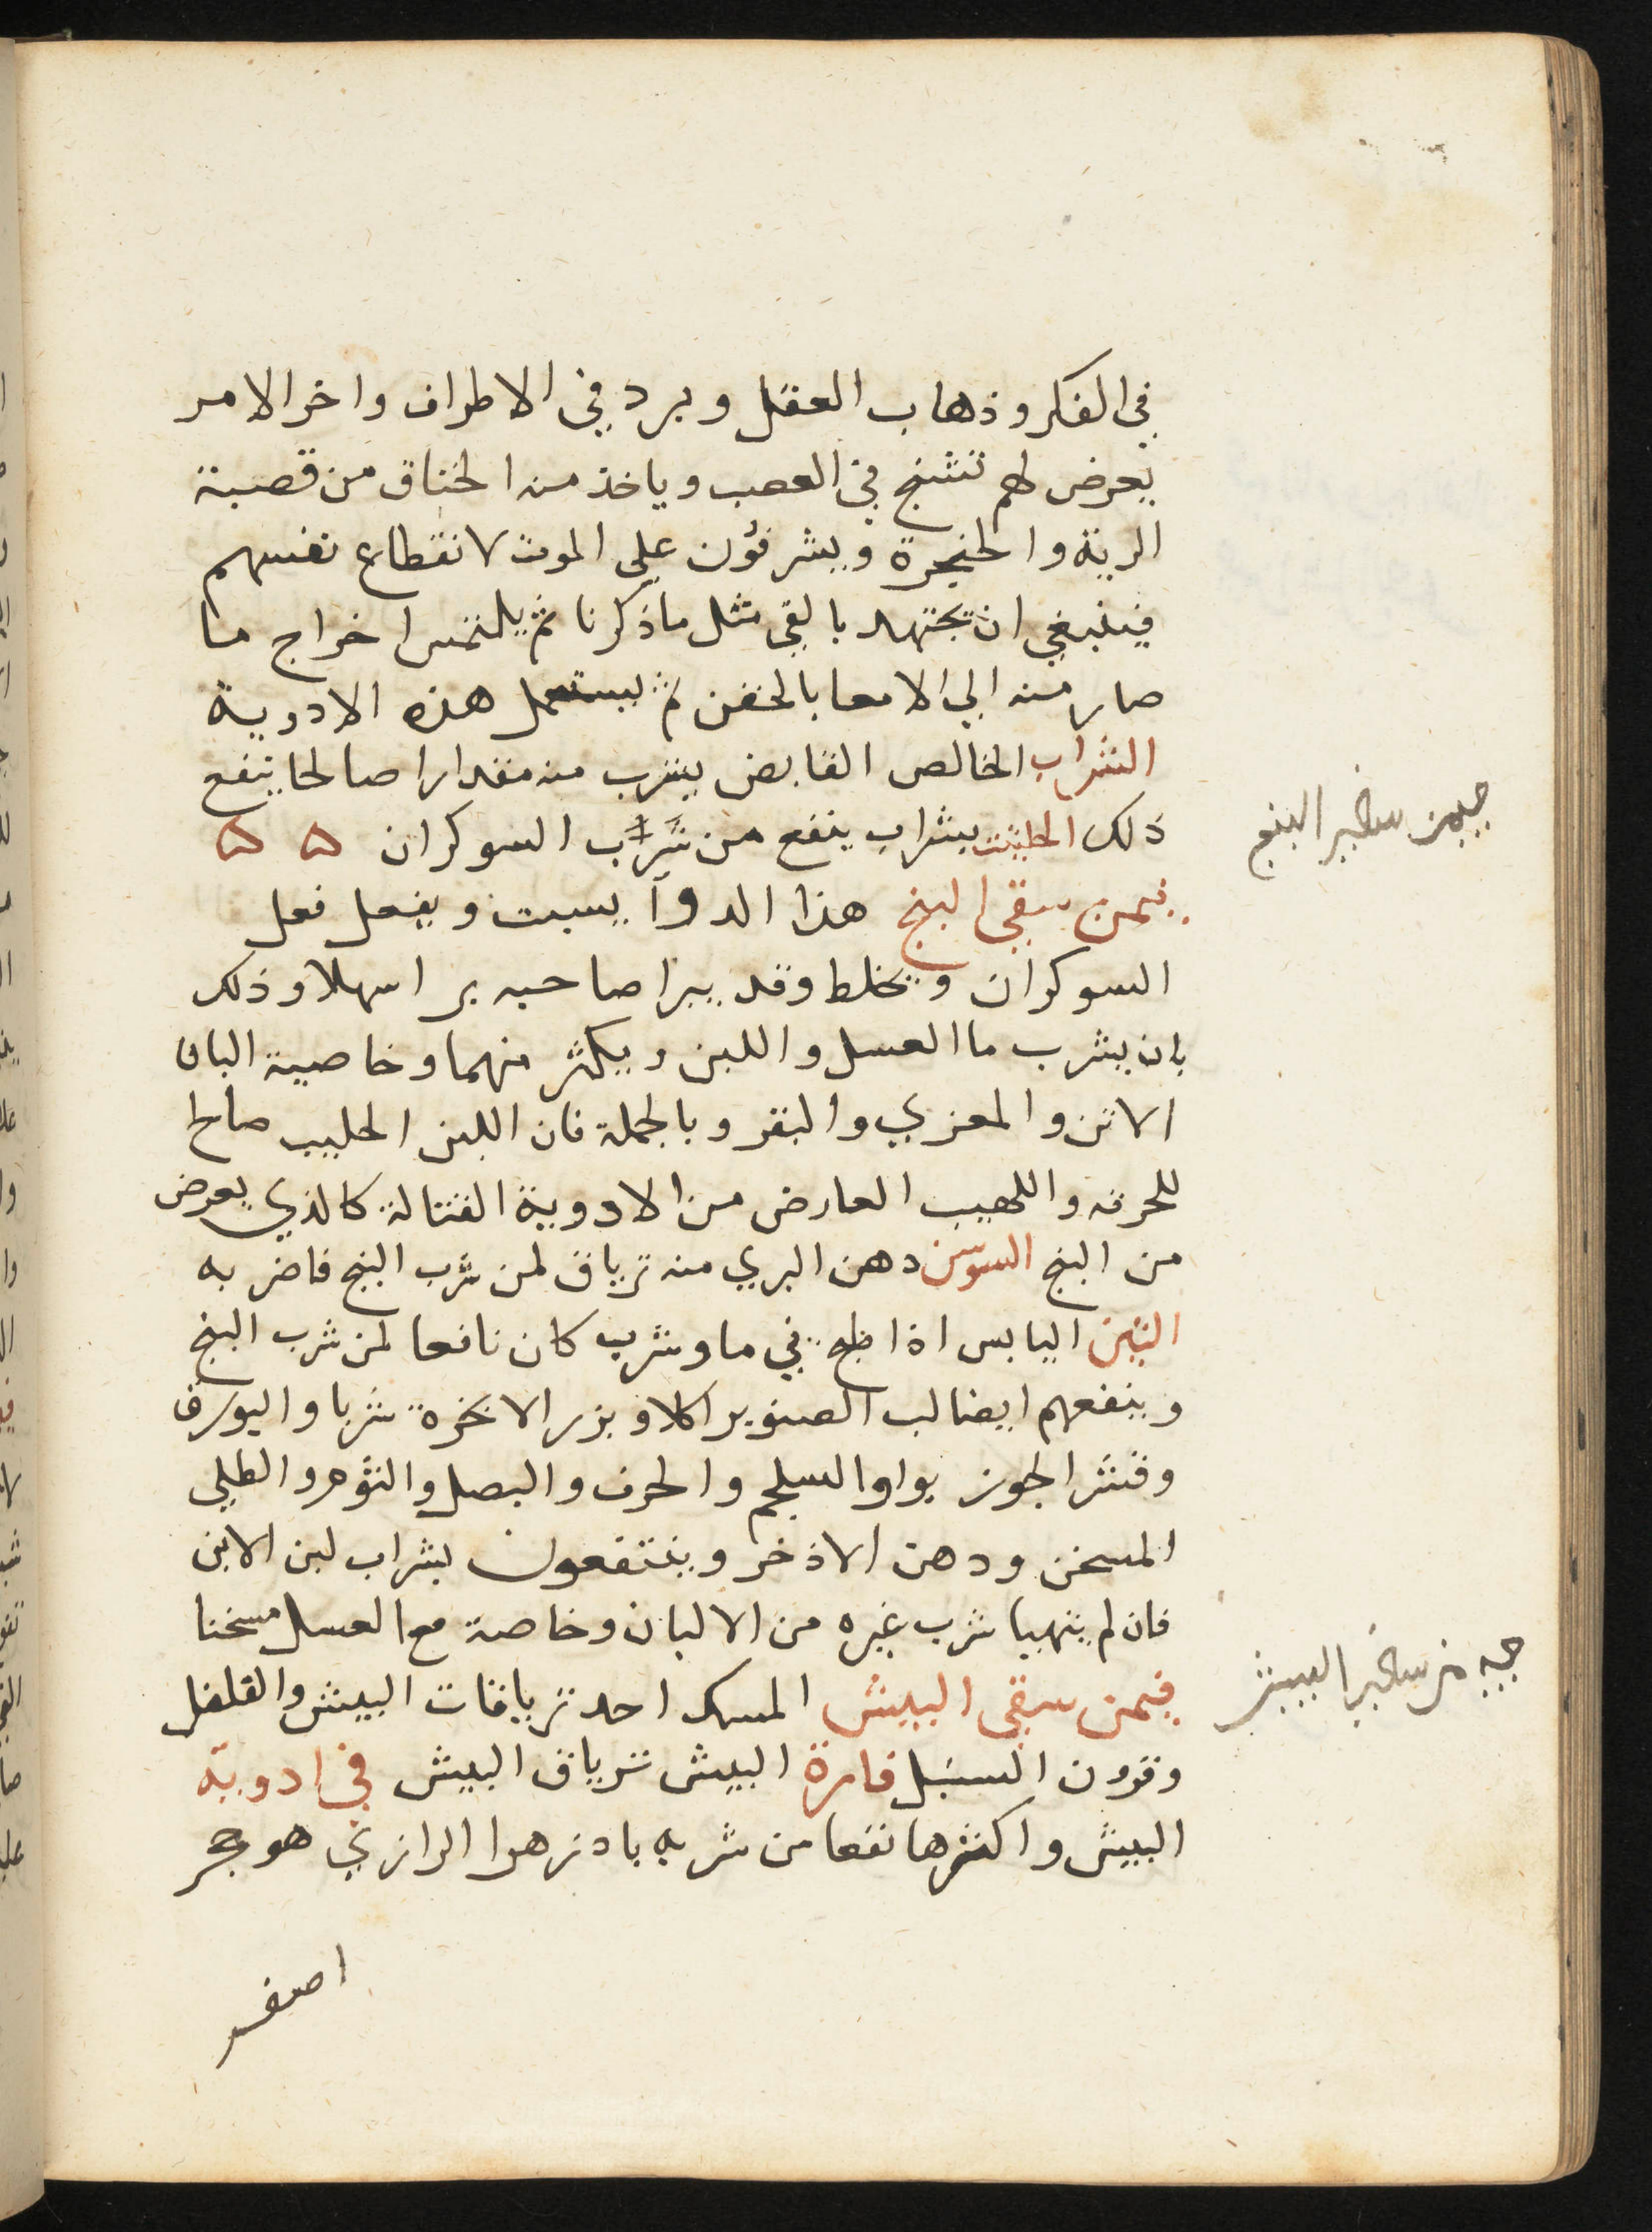 في الفكر وذهاب العقل وبرد في الاطراف واخر الامر
يعرض لهم تشنج في العصب وياخذ منه الخناق من قصبة
الرية والحنجرة ويشرفون علي الموت لانقطاع نفسهم
فينبغي ان تجتهد بالقي مثل ما ذكرنا ثم يلتمس اخراج ما
صار منه الي الامعا بالحقن ثم يستعمل هذه الادوية
الشراب الخالص القابض يشرب منه مقدارا صالحا ينفع
ذلك الحلتيت بشراب ينفع من شرب السوكران ۵ ۵
فيمن سقي البنج هذا الدوا يسبت ويفعل فعل
السوكران ويخلط وقد يبرا صاحبه برا سهلا وذلك
بان يشرب ما العسل واللبن ويكثر منهما وخاصية البان
الاتن والمعزي والبقر وبالجملة فان اللبن الحليب صالح
للحرقه واللهيب العارض من الادوية القتالة كالذي يعرض
من البنج السوسن دهن البري منه ترياق لمن شرب البنج فاضر به
التين اليابس اذا طبخ في ما وشرب كان نافعا لمن شرب البنج
وينفعهم ايضا لب الصنوبر اكلا وبزر الانجرة شربا والبورق
وقشر الجوز بوا والسلجم والحرف والبصل والثوم والطلي
المسخن ودهن الاذخر وينتفعون بشراب لبن الاتن
فان لم يتهيا شرب غيره من الالبان وخاصة مع العسل مسخنا
فيمن سقي البيش المسك احد ترياقات البيش والفلفل
وقرون السنبل فارة البيش ترياق البيش في ادوية
البيش واكثرها نفعا من شربه بادزهر الرازي هو حجر
اصفر
البنج
البيش